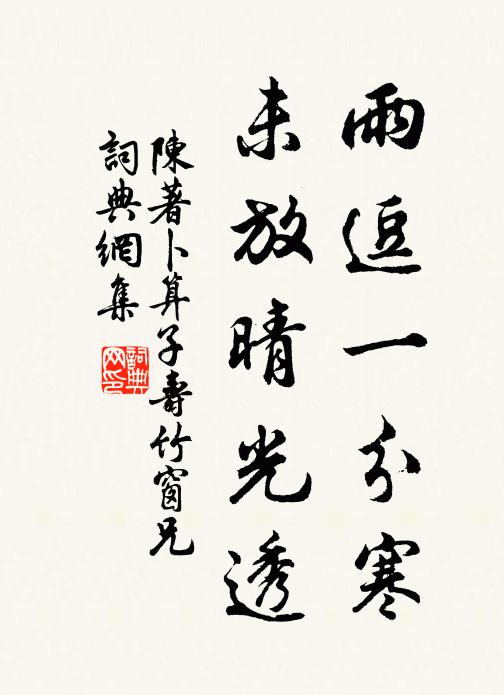 雨逗一分寒
未放晴光透
陳著卜算子壽竹窗兄
詞典網集
詞典
网印